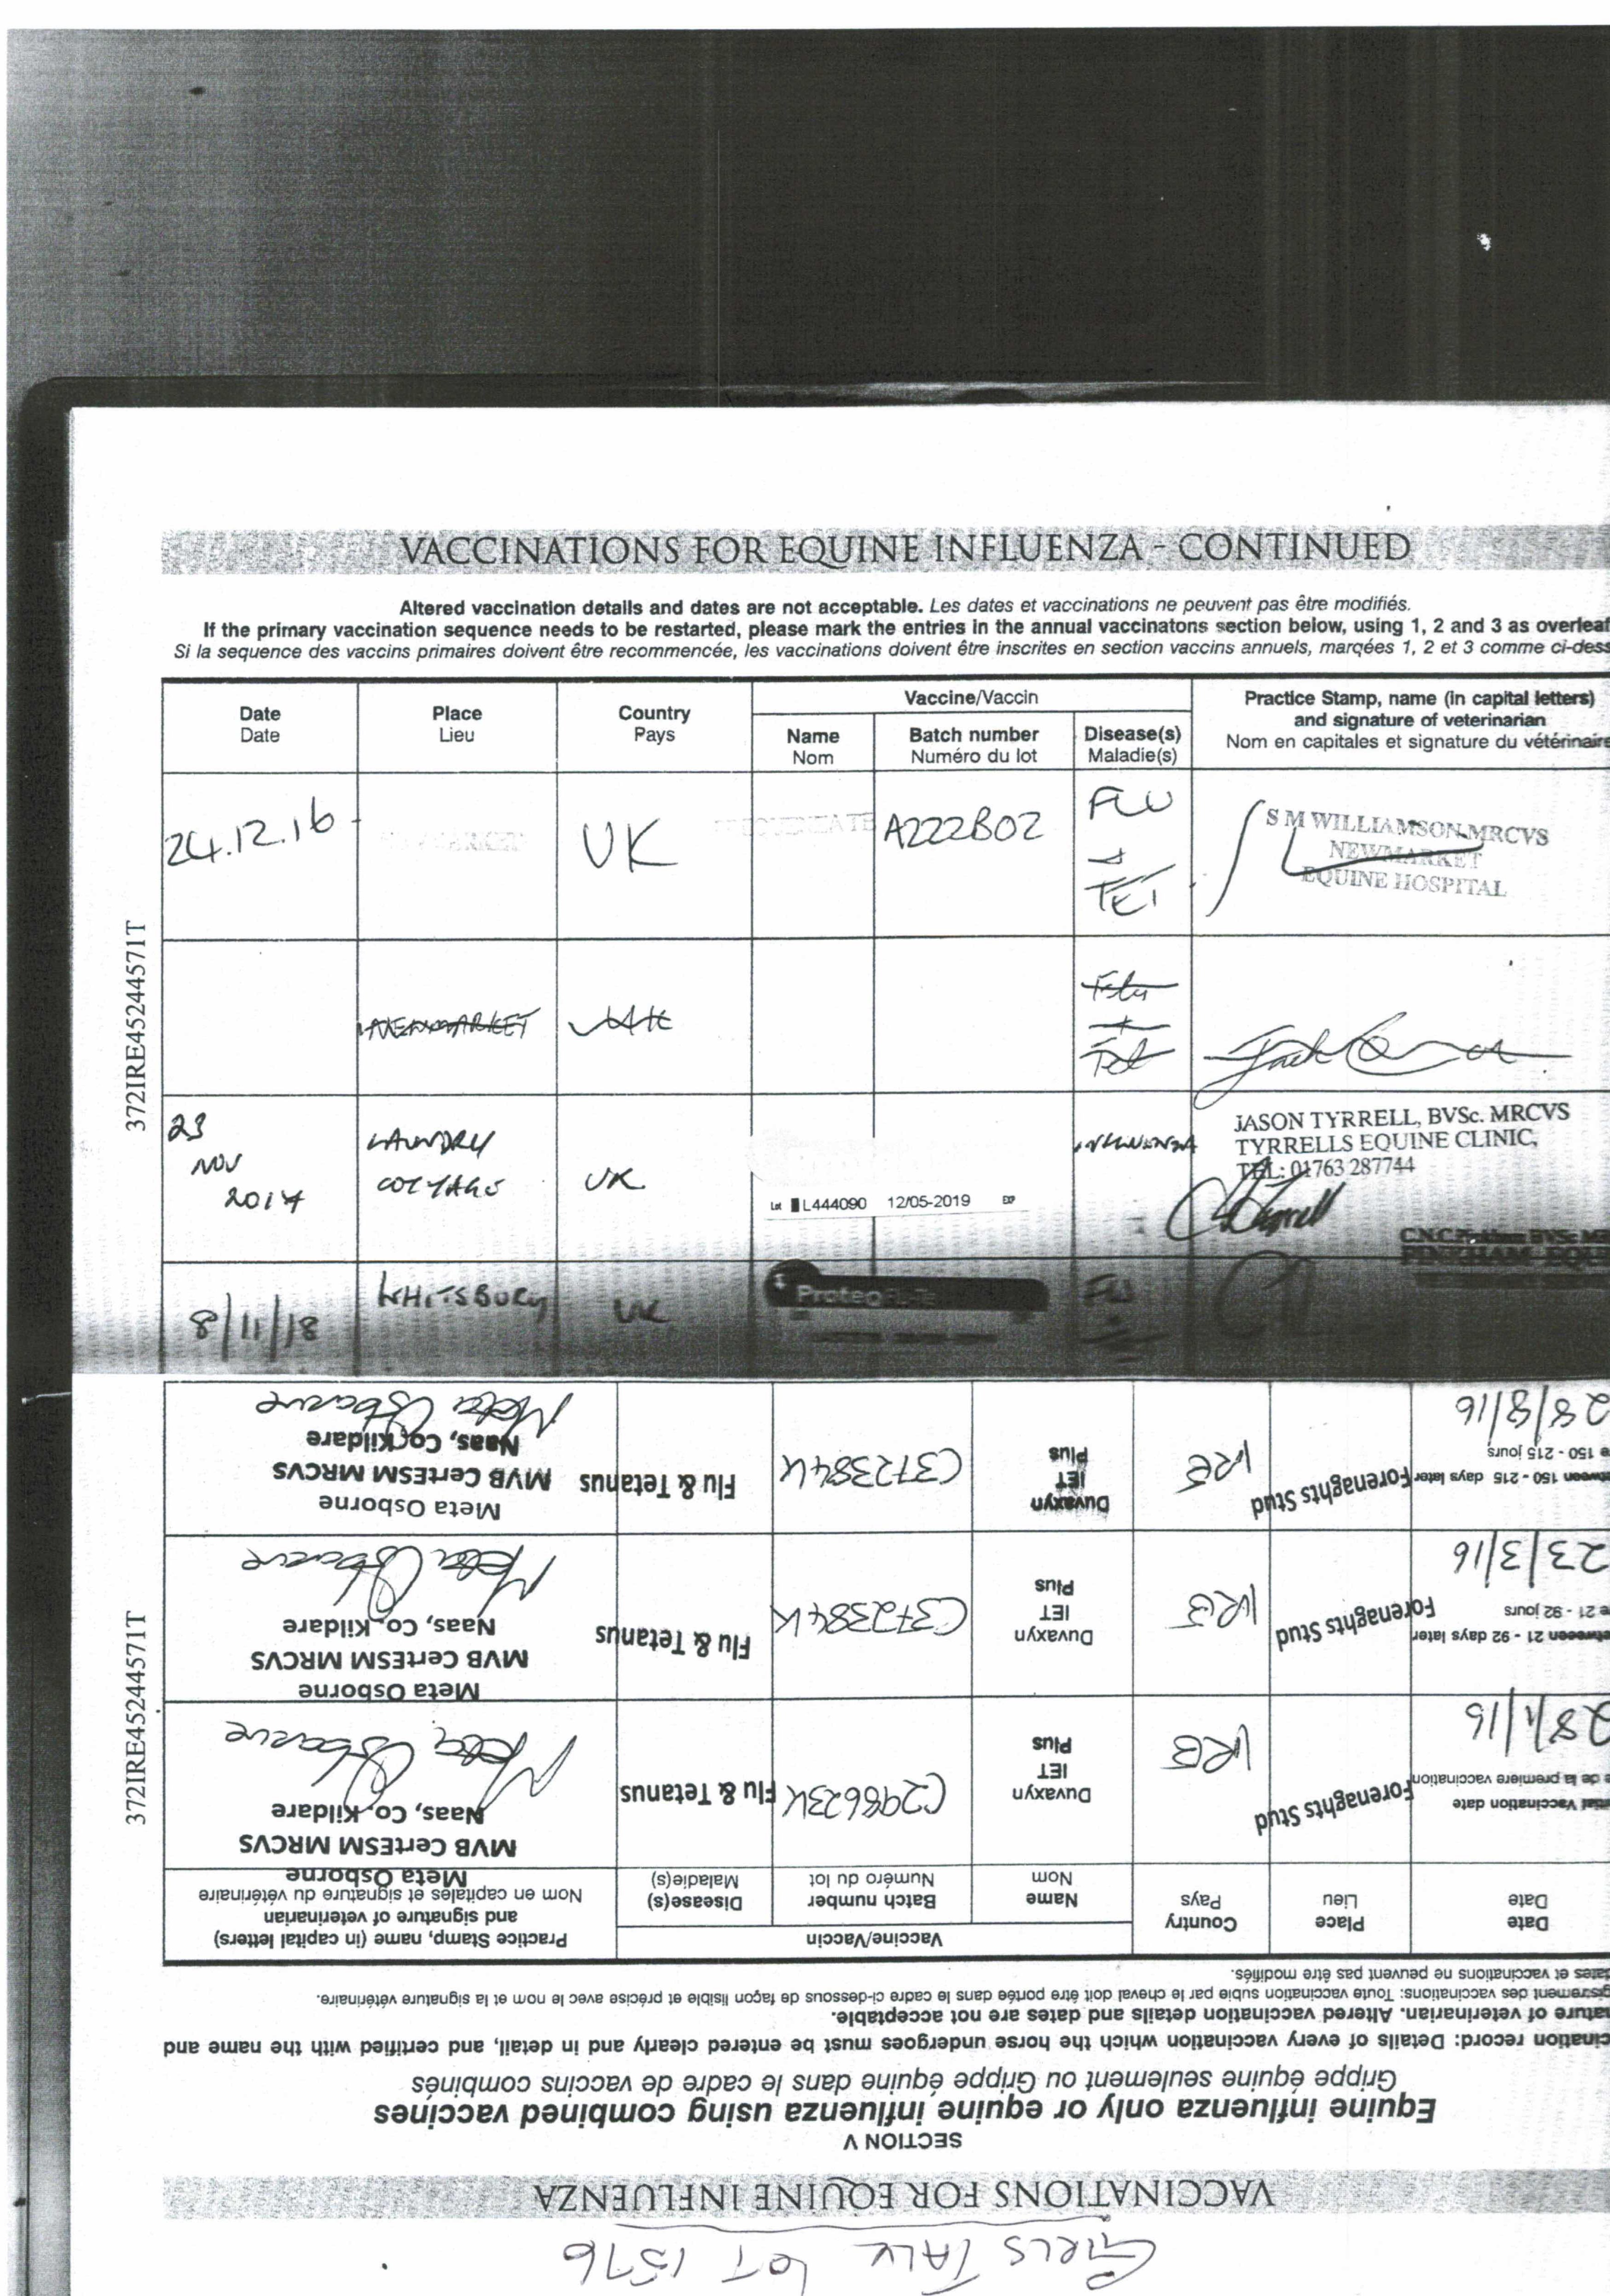 VACCINATIONS FOR EQUINE INFLUENZA - CONTINUED
Altered vaccination details and dates are not acceptable. Les dates et vaccinations ne peuvent pas être modifiés.
If the primary vaccination sequence needs to be restarted, please mark the entries in the annual vaccinatons section below, using 1, 2 and 3 as overleaf
Si la sequence des vaccins primaires doivent être recommencée, les vaccinations doivent être inscrites en section vaccins annuels, marqées 1, 2 et 3 comme ci-dess
Date Place Country Vaccine/Vaccin Practice Stamp, name (in capital letters)
Date Lieu Pays and signature of veterinarian
Name Batch number Disease(s) Nom en capitales et signature du vétérinaire
Nom Numéro du lot Maladie(s)
24.12.16 UK A222B02 FLU + TET
S M WILLIAMSON MRCVS
NEWMARKET
EQUINE HOSPITAL
372IRE45244571T
NEWMARKET UK Flu + Tet
23 NOV 2017 LAUNDRY COTTAGE UK INFLUENZA
Lot L444090 12/05-2019 EXP
JASON TYRRELL, BVSc. MRCVS
TYRRELLS EQUINE CLINIC,
TEL: 01763 287744
8/11/18 WHITSBURY UK Proteq FLU
GIRLS TALK LOT 1576
VACCINATIONS FOR EQUINE INFLUENZA
SECTION V
Equine influenza only or equine influenza using combined vaccines
Grippe équine seulement ou Grippe équine dans le cadre de vaccins combinés
cination record: Details of every vaccination which the horse undergoes must be entered clearly and in detail, and certified with the name and
nature of veterinarian. Altered vaccination details and dates are not acceptable.
gistrement des vaccinations: Toute vaccination subie par le cheval doit être portée dans le cadre ci-dessous de façon lisible et précise avec le nom et la signature vétérinaire.
dates et vaccinations ne peuvent pas être modifiés.
Date Place Country Vaccine/Vaccin Practice Stamp, name (in capital letters)
Date Lieu Pays and signature of veterinarian
Name Batch number Disease(s) Nom en capitales et signature du vétérinaire
Nom Numéro du lot Maladie(s)
Vaccination date
e de la premiere vaccination
28/1/16 Forenaghts Stud IRE Duvaxyn IET Plus C298623K Flu & Tetanus
Meta Osborne
MVB CertESM MRCVS
Naas, Co. Kildare
Meta Osborne
between 21 - 92 days later
e 21 - 92 jours
23/3/16 Forenaghts Stud IRE Duvaxyn IET Plus C372384K Flu & Tetanus
Meta Osborne
MVB CertESM MRCVS
Naas, Co. Kildare
Meta Osborne
between 150 - 215 days later
e 150 - 215 jours
28/8/16 Forenaghts Stud IRE Duvaxyn IET Plus C372384K Flu & Tetanus
Meta Osborne
MVB CertESM MRCVS
Naas, Co. Kildare
Meta Osborne
372IRE45244571T